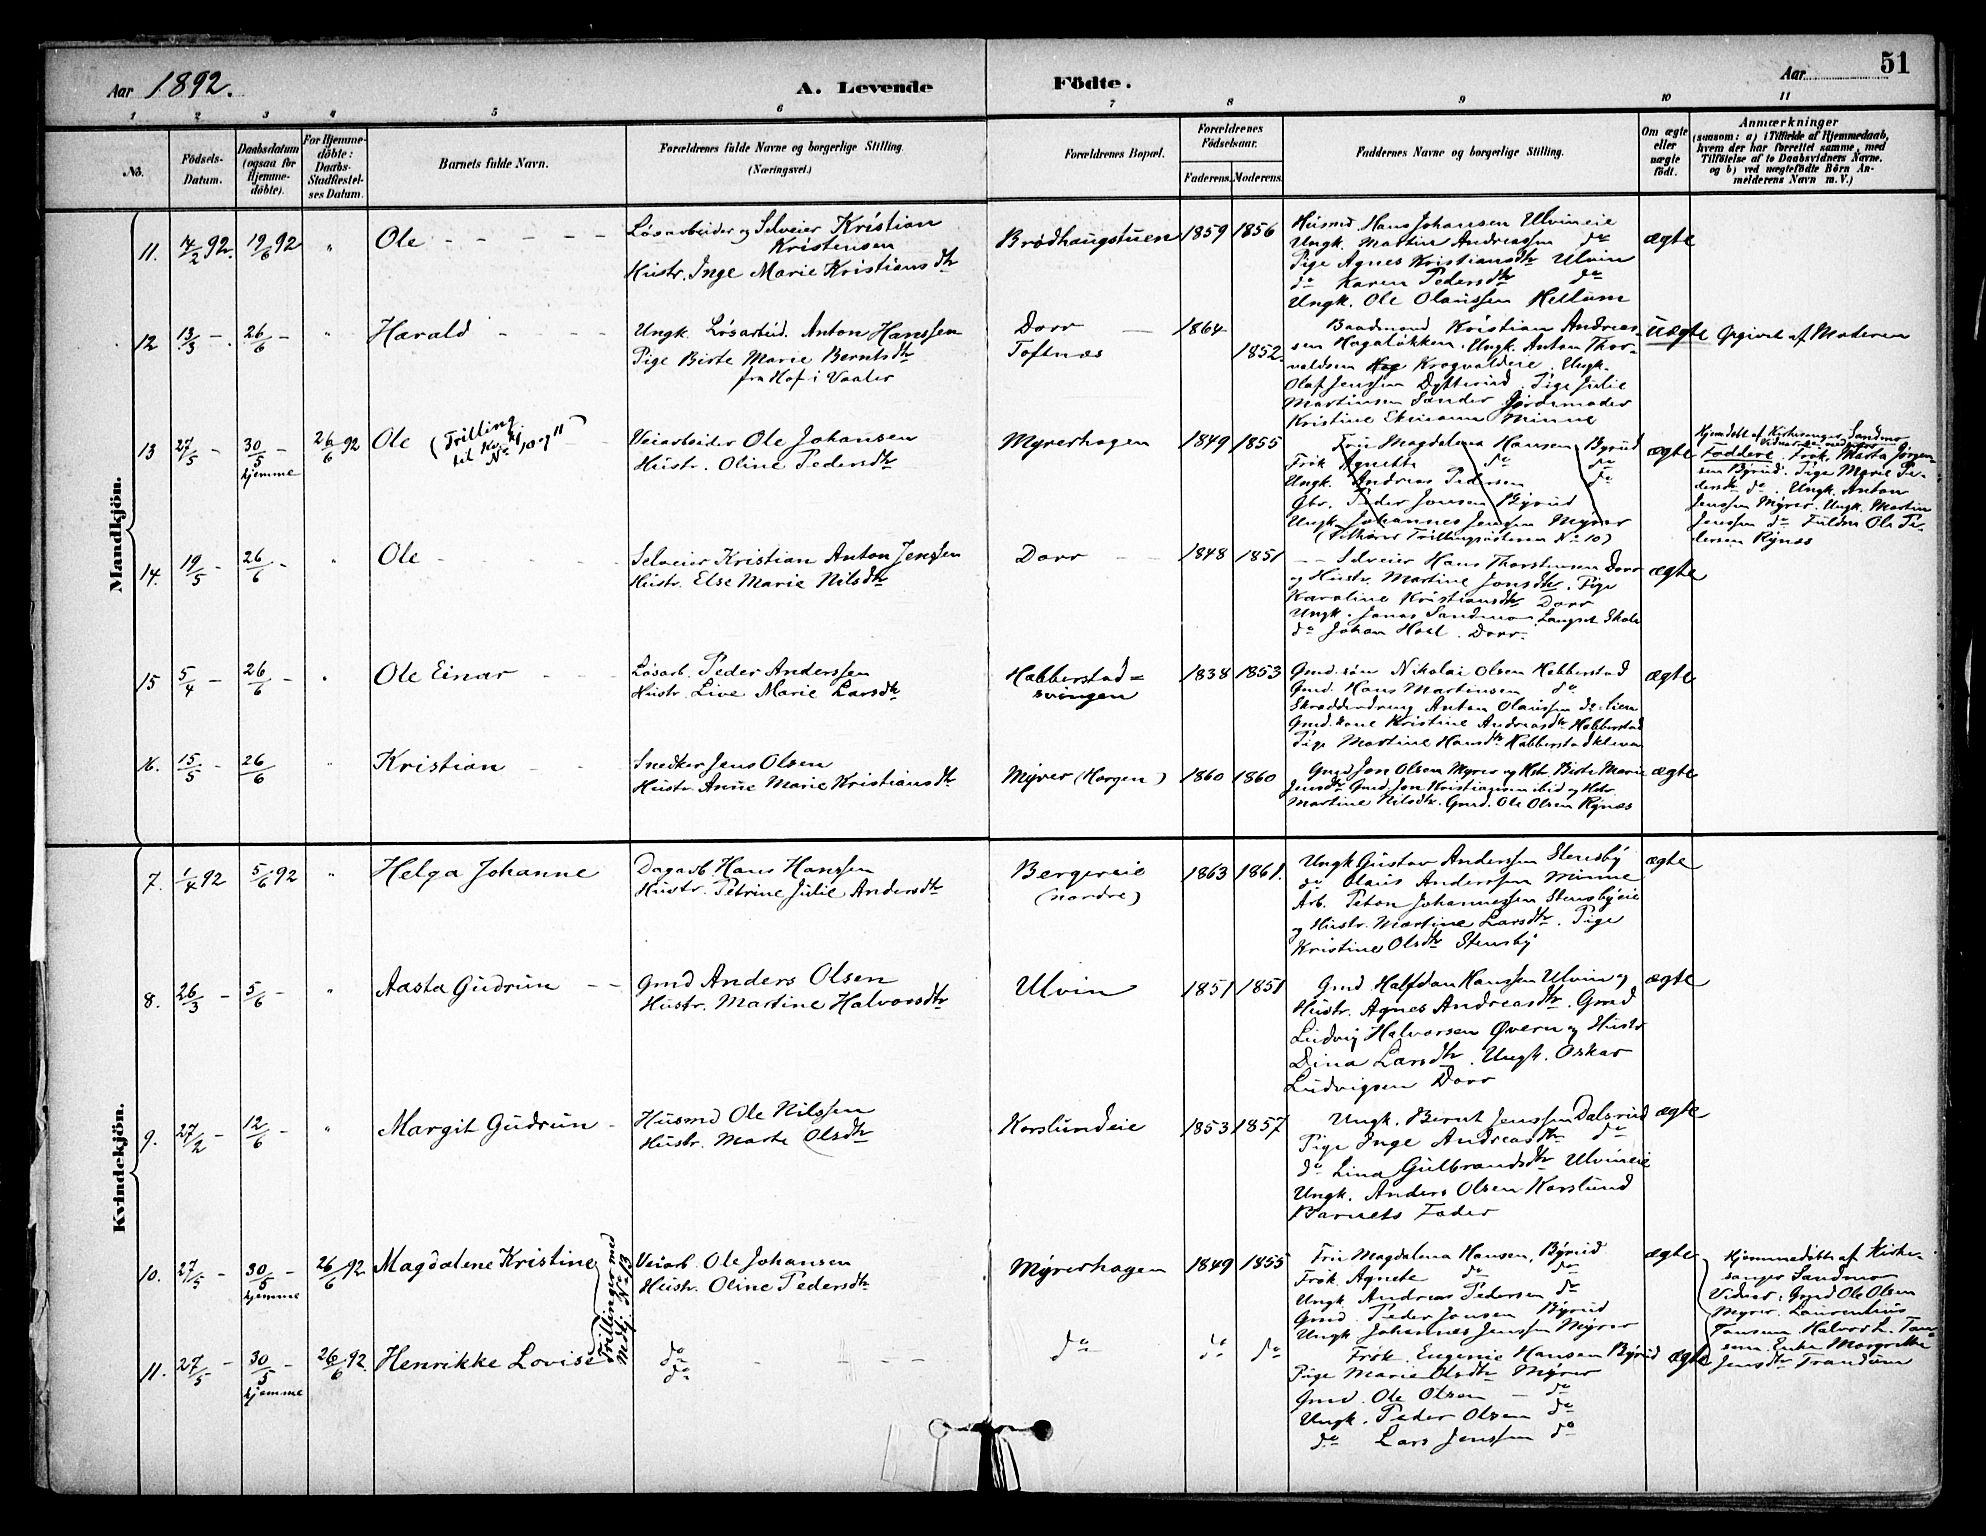 Aar 1892.
A. Levende
Födte.
Aar
51
1 2 3 4 5 6 7 8 9 10 11
No.
Födsels-
Datum.
Daabsdatum
(ogsaa for
Hjemme-
döbte).
For Hjemme-
döbte:
Daabs-
Stadfæstel-
ses Datum.
Barnets fulde Navn.
Forældrenes fulde Navne og borgerlige Stilling.
(Næringsvei.)
Forældrenes Bopæl.
Forældrenes
Födselsaar.
Faderens. Moderens.
Faddernes Navne og borgerlige Stilling.
Om ægte
eller
uægte
födt.
Anmærkninger
(saasom: a) i Tilfælde af Hjemmedaab,
hvem der har forrettet samme, med
Tilföielse af to Daabsvidners Navne.
og b) ved uægtefödte Börn An-
melderens Navn m. V.)
Mandkjön.
11. 14/2 92. 19/6 92 " Ole
Løsarbeider og Selveier Kristian
Kristensen
Hustr. Inge Marie Kristiansdtr
Brødhaugstuen 1859 1856
Husmd Hans Johansen Ulvineie
Ungk. Martin Andreassen do
Pige Agnes Kristiansdtr Ulvin
do Karen Pedersdtr do
Ungk. Ole Olaussen Hellum
ægte
12 13/3 - 26/6 - " Harald
Ungk. Løsarbeid. Anton Hanssen
Pige Birte Marie Berntsdtr
fra Hof i Vaaler
Dorr
Toftnæs
1864
1852.
Baadmand Kristian Andreas-
sen Hagaløkken. Ungk. Anton Thor-
valdsen Krogvaldeie. Ungk.
Olaf Jenssen Dytterud. Pige Julie
Martinsen Sander Jordemoder
Kristine Minne
Uægte
Opgivet af Moderen
13 27/5 - 30/5 - hjemme 26/6 92 Ole (Trilling
til Kv.kj.
No 10 og 11)
Veiarbeider Ole Johansen
Hustr. Oline Pedersdtr
Myrerhagen 1849 1855
Fru Magdalena Hansen Byrud
Frøk Agnette do do
Ungk Andreas Pedersen do
Gbr. Peder Jonsen Byrud
Ungk Johannes Jensen Myrer
(tilhører Trillingsøsteren No 10)
ægte
Hjemdøbt af Kirkesanger Sandmo
Vidner som ved
Faddere. Frøk. Marta Jørgen-
sen Byrud. Pige Marie Pe-
dersdtr do Ungk. Anton
Jenssen Myrer. Ungk. Martin
Jenssen do Fuldm Ole Pe-
dersen Rynæs
14. 19/5 - 26/6 - " Ole
Selveier Kristian Anton Jenssen
Hustr. Else Marie Nilsdtr
Dorr 1848 1851
Selveier Hans Thorstensen Dorr
og Hustr. Martine Jonsdtr. Pige
Karoline Kristiansdtr Dorr
Ungk. Jonas Sandmo Langset Skole
do Johan Hoel. Dorr.
ægte
15 5/4 - 26/6 - " Ole Einar
Løsarb. Peder Anderssen
Hustr. Live Marie Larsdtr
Habberstad=
svingen
1838 1853
Gmd.søn Nikolai Olsen Habberstad
Gmd. Hans Martinsen do
Skrædderdreng Anton Olaussen
Gmd.kone Kristine Andreasdtr Habberstad
Pige Martine Hansdtr Habberstadkleven
ægte
16. 15/5 - 26/6 " Kristian
Snedker Jens Olsen
Hustr. Anne Marie Kristiansdtr
Myrer (Horgen) 1860 1860
Gmd Jon Olsen Myrer og Hstr. Birte Marie
Jensdtr Gmd. Jon Kristiansen ibid og Hstr.
Martine Nilsdtr. Gmd. Ole Olsen Rynæs
ægte
Kvindekjön.
7. 1/4 92 5/6 92 " Helga Johanne
Dagarb Hans Hanssen
Hustr. Petrine Julie Andersdtr
Bergereie
(nordre)
1863 1861.
Ungk Gustav Anderssen Stensby
do Olaus Anderssen Minne
Arb. Peton Johannessen Stensbyeie
og Hustr. Martine Larsdtr. Pige
Kristine Olsdtr Stensby
ægte
8. 26/3 - 5/6 - " Aasta Gudrun
Gmd Anders Olsen
Hustr. Martine Halvorsdtr
Ulvin 1851 1851
Gmd Halfdan Hanssen Ulvin og
Hustr. Agnes Andreasdtr. Gmd
Ludvig Halvorsen Øvern og Hustr
Dina Larsdtr. Ungk. Oskar
Ludvigsen Dorr
ægte
9. 27/2 - 12/6 - " Margit Gudrun
Husmd Ole Nilssen
Hustr. Marte Olsdtr
Korslundeie 1853 1857
Ungk. Bernt Jenssen Dalsrud
Pige Inge Andreasdtr do
do Lina Gulbrandsdtr Ulvineie
Ungk. Anders Olsen Korslund
Barnets Fader
ægte
10. 27/5 - 30/5 - hjemme 26/6 92 Magdalene Kristine
Trillinger med
Mdkj. No 13
Veiarb. Ole Johansen
Hustr. Oline Pedersdtr
Myrerhagen 1849 1855
Fru Magdalena Hansen, Byrud
Frøk. Agnete do do
Ungk Andreas Pedersen do
Gmd. Peder Jonsen Byrud
Ungk Johannes Jenssen Myrer
ægte
Hjemmedøbt af Kirke-
sanger Sandmo
Vidner: Gmd Ole Olsen
Myrer, Laurentius
Halvor L.
Enke Margrethe
Jensdtr Trandum
11. 27/5 - 30/5 - hjemme 26/6 92. Henrikke Lovise
do
do
do do do
Frøk. Eugenie Hansen Byrud
Pige Marie Olsdtr Myrer
Gmd. Ole Olsen - do
Ungk. Peder Olsen do
do Lars Jenssen do
ægte